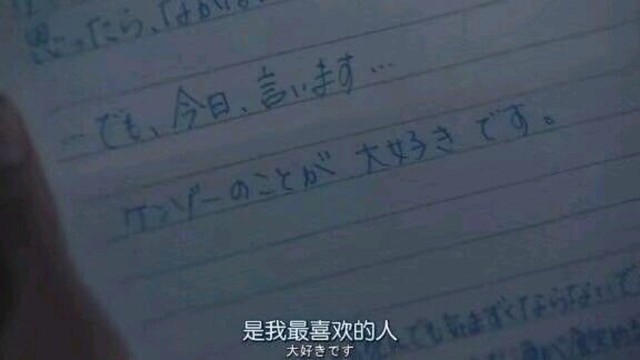 思ったら、なかな
…でも、今日、言います…
ケンゾーのことが 大好きです。
ても気まずくならないで
是我最喜欢的人
大好きです